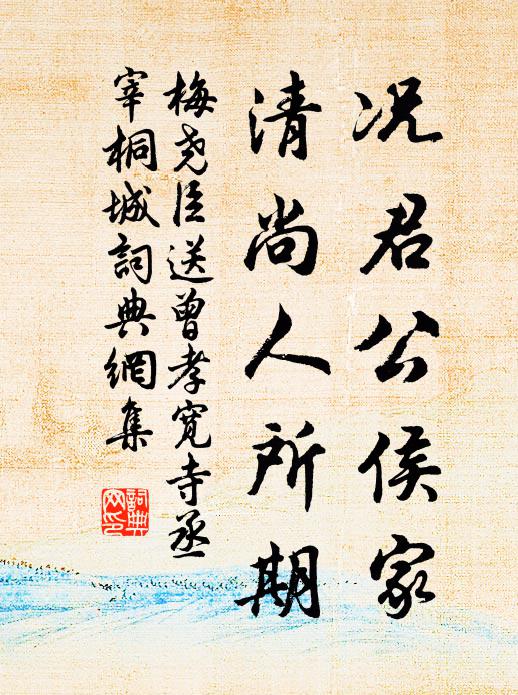 况君公侯家
清尚人所期
梅尧臣送曾孝寛寺丞
宰桐城詞典網集
詞典
网印